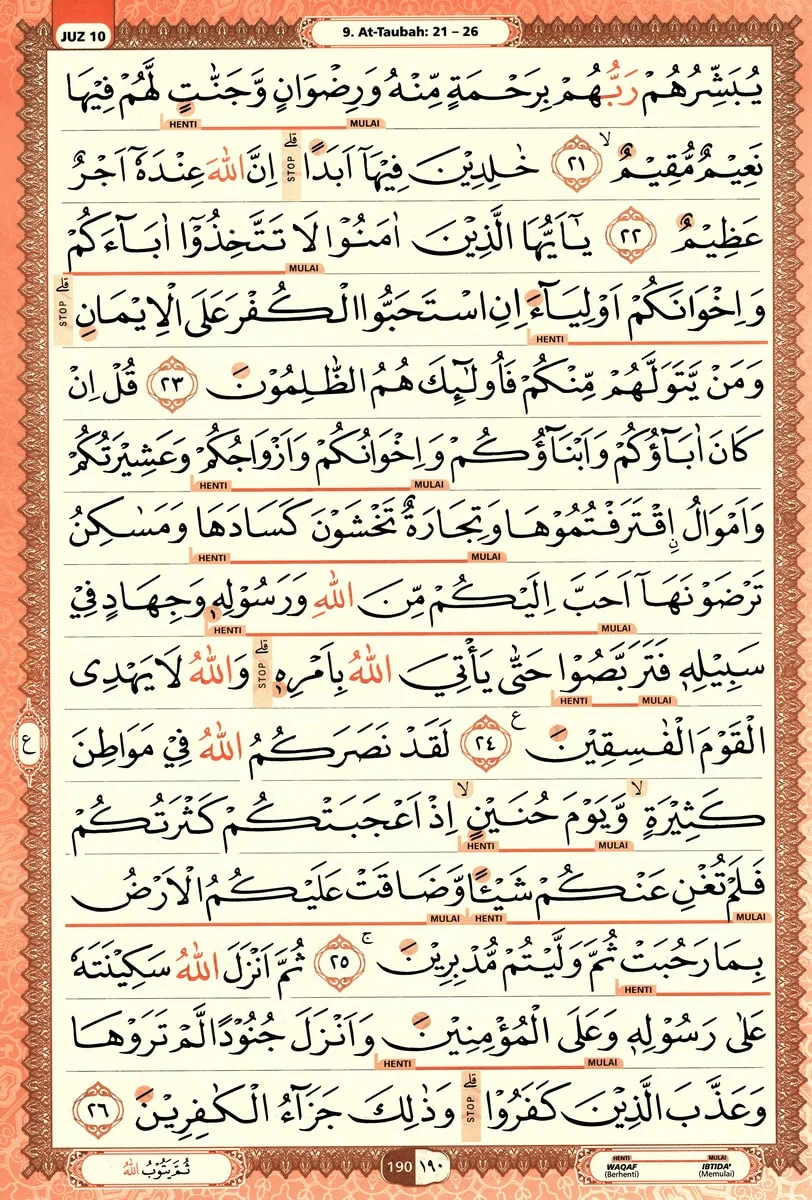 JUZ 10
9. At-Taubah: 21 – 26
يُبَشِّرُهُمْ رَبُّهُمْ بِرَحْمَةٍ مِّنْهُ وَرِضْوَانٍ وَّجَنّٰتٍ لَّهُمْ فِيْهَا
HENTI MULAI
نَعِيْمٌ مُّقِيْمٌ ۙ ٢١ خٰلِدِيْنَ فِيْهَآ اَبَدًا ۗ STOP اِنَّ اللّٰهَ عِنْدَهٗٓ اَجْرٌ
عَظِيْمٌ ٢٢ يٰٓاَيُّهَا الَّذِيْنَ اٰمَنُوْا لَا تَتَّخِذُوْٓا اٰبَاۤءَكُمْ
MULAI
وَاِخْوَانَكُمْ اَوْلِيَاۤءَ اِنِ اسْتَحَبُّوا الْكُفْرَ عَلَى الْاِيْمَانِ ۗ STOP
HENTI
وَمَنْ يَّتَوَلَّهُمْ مِّنْكُمْ فَاُولٰۤىِٕكَ هُمُ الظّٰلِمُوْنَ ٢٣ قُلْ اِنْ
كَانَ اٰبَاۤؤُكُمْ وَاَبْنَاۤؤُكُمْ وَاِخْوَانُكُمْ وَاَزْوَاجُكُمْ وَعَشِيْرَتُكُمْ
HENTI MULAI
وَاَمْوَالُ ِۨاقْتَرَفْتُمُوْهَا وَتِجَارَةٌ تَخْشَوْنَ كَسَادَهَا وَمَسٰكِنُ
HENTI MULAI
تَرْضَوْنَهَآ اَحَبَّ اِلَيْكُمْ مِّنَ اللّٰهِ وَرَسُوْلِهٖ وَجِهَادٍ فِيْ
HENTI MULAI
سَبِيْلِهٖ فَتَرَبَّصُوْا حَتّٰى يَأْتِيَ اللّٰهُ بِاَمْرِهٖ ۗ STOP وَاللّٰهُ لَا يَهْدِى
HENTI MULAI
الْقَوْمَ الْفٰسِقِيْنَ ࣖ ٢٤ لَقَدْ نَصَرَكُمُ اللّٰهُ فِيْ مَوَاطِنَ
ع
كَثِيْرَةٍ ۙ وَّيَوْمَ حُنَيْنٍ ۙ اِذْ اَعْجَبَتْكُمْ كَثْرَتُكُمْ
HENTI MULAI
فَلَمْ تُغْنِ عَنْكُمْ شَيْـًٔا وَّضَاقَتْ عَلَيْكُمُ الْاَرْضُ
MULAI HENTI MULAI
بِمَا رَحُبَتْ ثُمَّ وَلَّيْتُمْ مُّدْبِرِيْنَ ۚ ٢٥ ثُمَّ اَنْزَلَ اللّٰهُ سَكِيْنَتَهٗ
HENTI
عَلٰى رَسُوْلِهٖ وَعَلَى الْمُؤْمِنِيْنَ وَاَنْزَلَ جُنُوْدًا لَّمْ تَرَوْهَا
HENTI MULAI
وَعَذَّبَ الَّذِيْنَ كَفَرُوْا ۗ STOP وَذٰلِكَ جَزَاۤءُ الْكٰفِرِيْنَ ٢٦
ثُمَّ يَتُوْبُ اللّٰهُ
190 ١٩٠
HENTI MULAI
WAQAF IBTIDA'
(Berhenti) (Memulai)